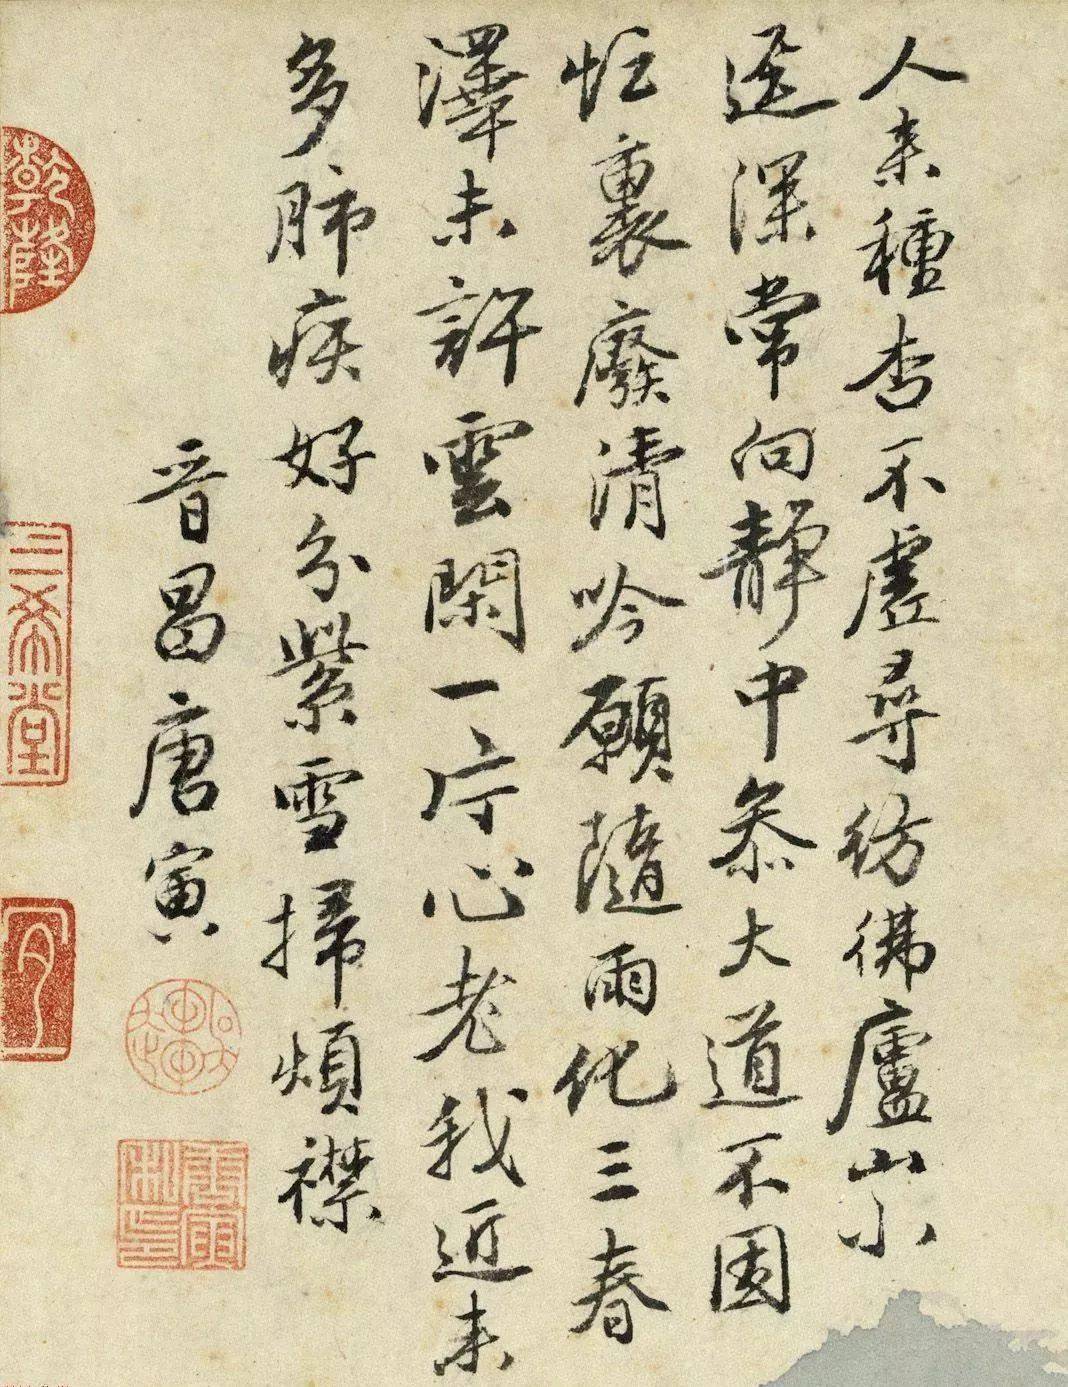 人来種杏不虚尋彷彿廬山小
逕深常向靜中叅大道不因
忙裏廢清吟願隨雨化三春
澤未許雲閑一片心老我近来
多肺疾好分紫雪掃煩襟
晋昌唐寅
三希堂